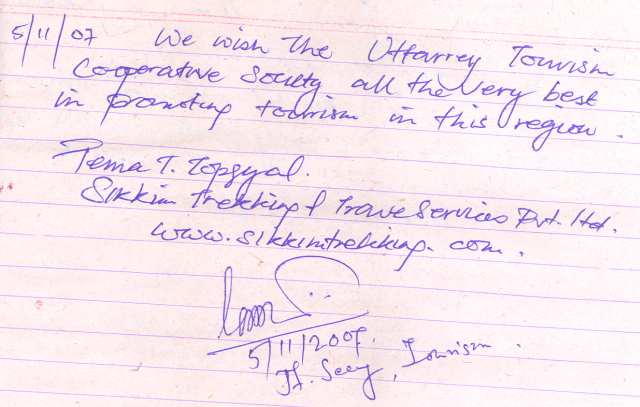 5/11/07 We wish the Uttarrey Tourism
Cooperative Society all the very best
in promoting tourism in this region.
Pema T. Topgyal.
Sikkim Trekking & Travel Services Pvt. Ltd.
www.sikkimtrekking.com.
5/11/2007.
Jt. Secy, Tourism.